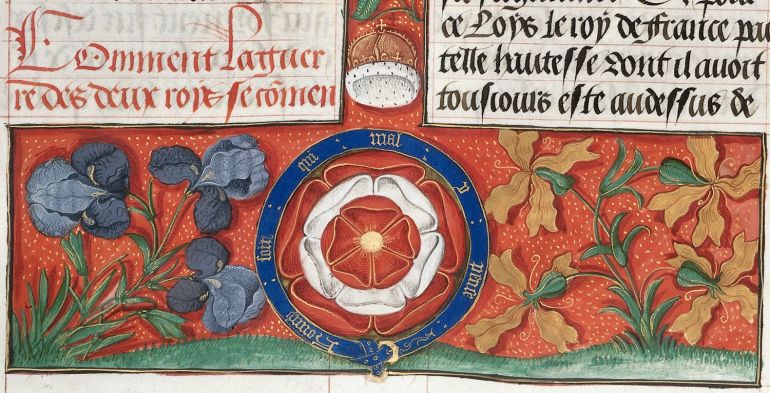 Comment la guer
re des deux roix se cōmen
ce Loÿs le roÿ de ffrance par
telle hautesse dont il auoit
tousiours este audessus de
soit qui mal y